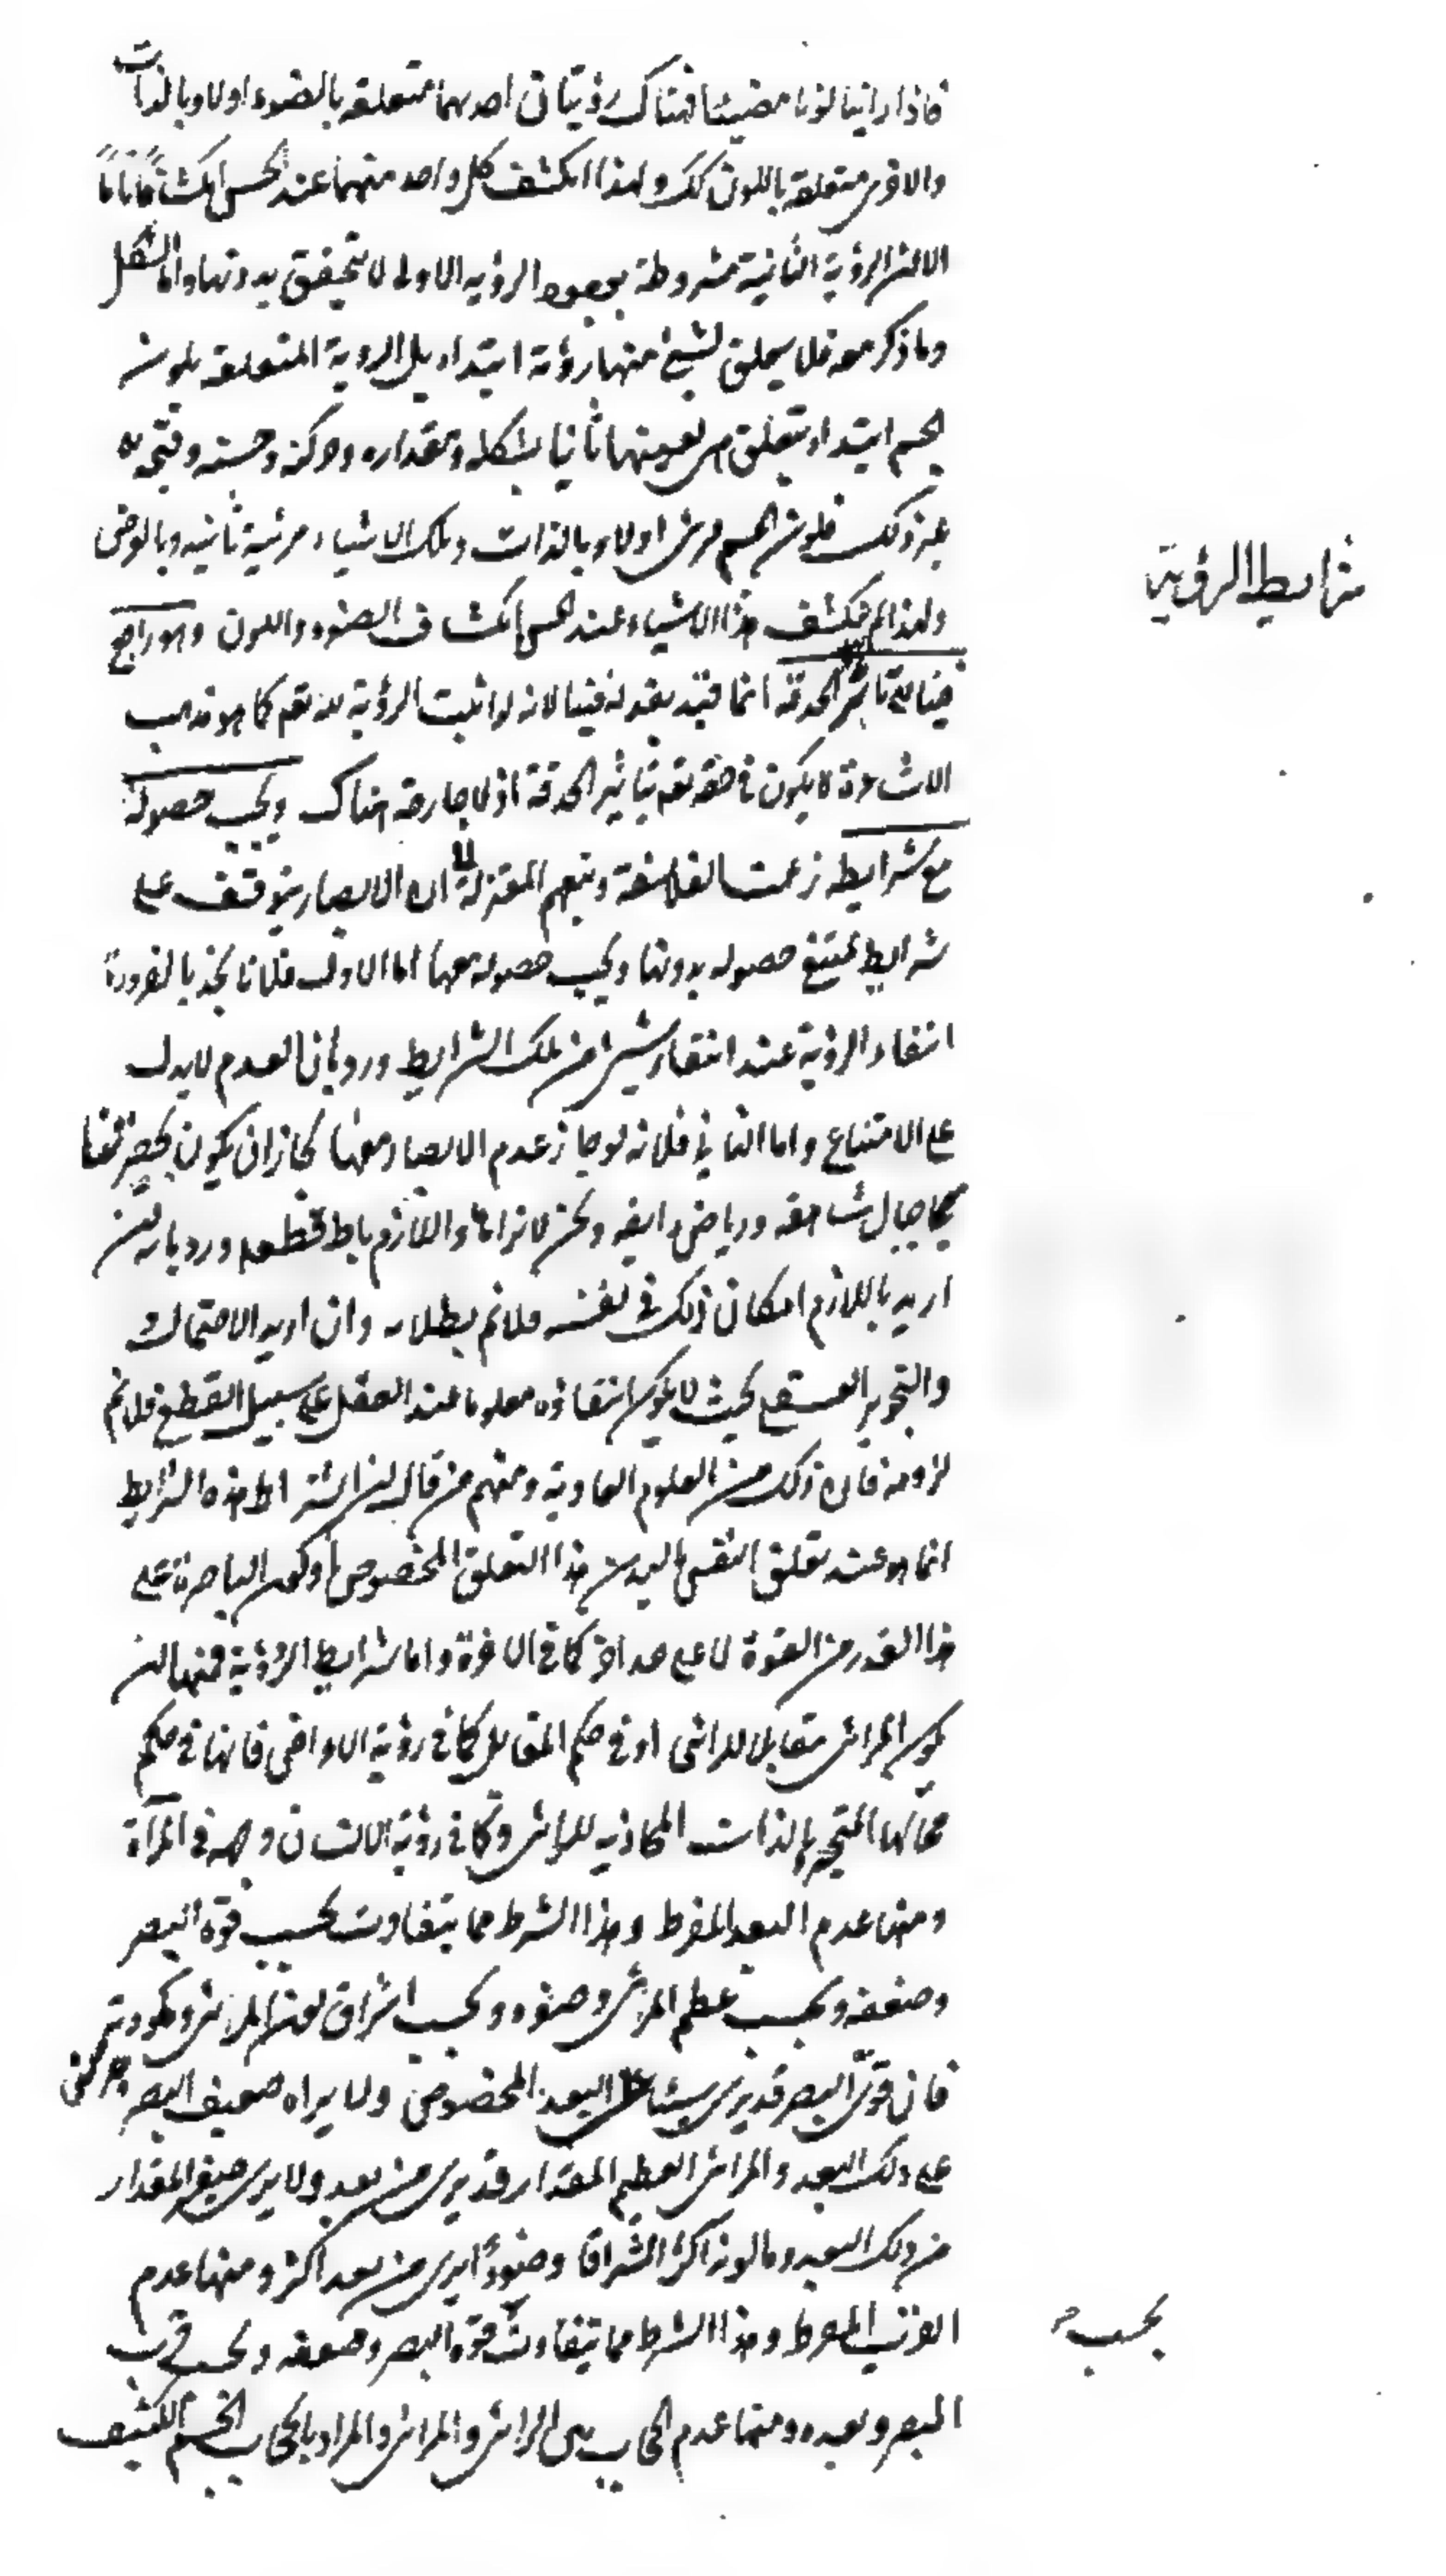 فاذا راينا لونا مضيئا فهناك رؤيتان احديهما متعلقه بالضوء اولا وبالذات
والاخرى متعلقه باللون كك ولهذا انكشف كل واحد منهما عند الحس انكشافا تاما
الا ان الرؤية الثانية مشروطة بحصول الرؤيه الاولى لا يتحقق بدونها واما الشكل
وما ذكر معه فلا يتعلق لشئ منها رؤية ابتداء بل الروية المتعلقه بلون
الجسم ابتداء يتعلق هى بعينها ثانيا بشكله ومقداره وحركته وحسنه وقبحه
غير ذلك فلون الجسم مرئى اولا وبالذات وتلك الاشياء مرئية ثانيه وبالعرض
ولهذا لم ينكشف هذا الاشياء عند الحس انكشاف الضوء واللون وهو راجع
فينا الى تاثر الحدقة انما قيد بقوله فينا لانه لو اثبت الرؤية لله تعم كما هو مذهب
الاشاعرة لا يكون فى حقه تعم بتاثير الحدقة اذ لا جارحة هناك ويجب حصوله
مع شرايطه زعمت الفلاسفة وتبعهم المعتزلة ان الابصار يتوقف على
شرايط يمتنع حصوله بدونها ويجب حصوله معها اما الاول فلانا نجد بالضرورة
انتفاء الرؤية عند انتفاء شئ من تلك الشرايط ورد بان العدم لا يدل
على الامتناع واما الثانى فلانه لو جاز عدم الابصار معها لجاز ان يكون بحضرتنا
جبال شاهقه ورياض رايقه ونحن لا نراها واللازم باط قطعا ورد بانه ان
اريد باللازم امكان ذلك فى نفسه فلانم بطلانه وان اريد الاحتمال
والتجويز العقلى بحيث لا يكون انتفاؤه معلوما عند العقل على سبيل القطع فلانم
لزومه فان ذلك من العلوم العادية ومنهم من قال ان اشتراط هذه الشرايط
انما هو عند تعلق النفس بالبدن هذا التعلق المخصوص او كون الباصرة على
هذا القدر من القوة لا على حد اخر كما فى الاخرة واما شرايط الرؤية فمنها ان
يكون المرئى مقابلا للرائى او فى حكم المقابل كما فى رؤية الاعراض فانها فى حكم
محالها المتحيزة بالذات المحاذيه للرائى وكما فى رؤية الانسان وجهه فى المرآة
ومنها عدم البعد المفرط وهذا الشرط مما يتفاوت بحسب قوة البصر
وضعفه وبحسب عظم المرئى وصغره وبحسب اشراق لون المرئى وكمودته
فان قوى البصر قد يرى شيئا على البعد المخصوص ولا يراه ضعيف البصر
على ذلك البعد والمرائى العظيم المقدار قد يرى من بعد ولا يرى صغير المقدار
من ذلك البعد وما لونه اكثر اشراقا وضوءا يرى من بعد اكثر ومنها عدم
القرب المفرط وهذا الشرط مما يتفاوت قوة البصر وضعفه وبحسب قرب
المبصر وبعده ومنها عدم الحجاب بين الرائى والمرائى والمراد بالحجاب الجسم الكثيف
شرايط الرؤية
بحسب